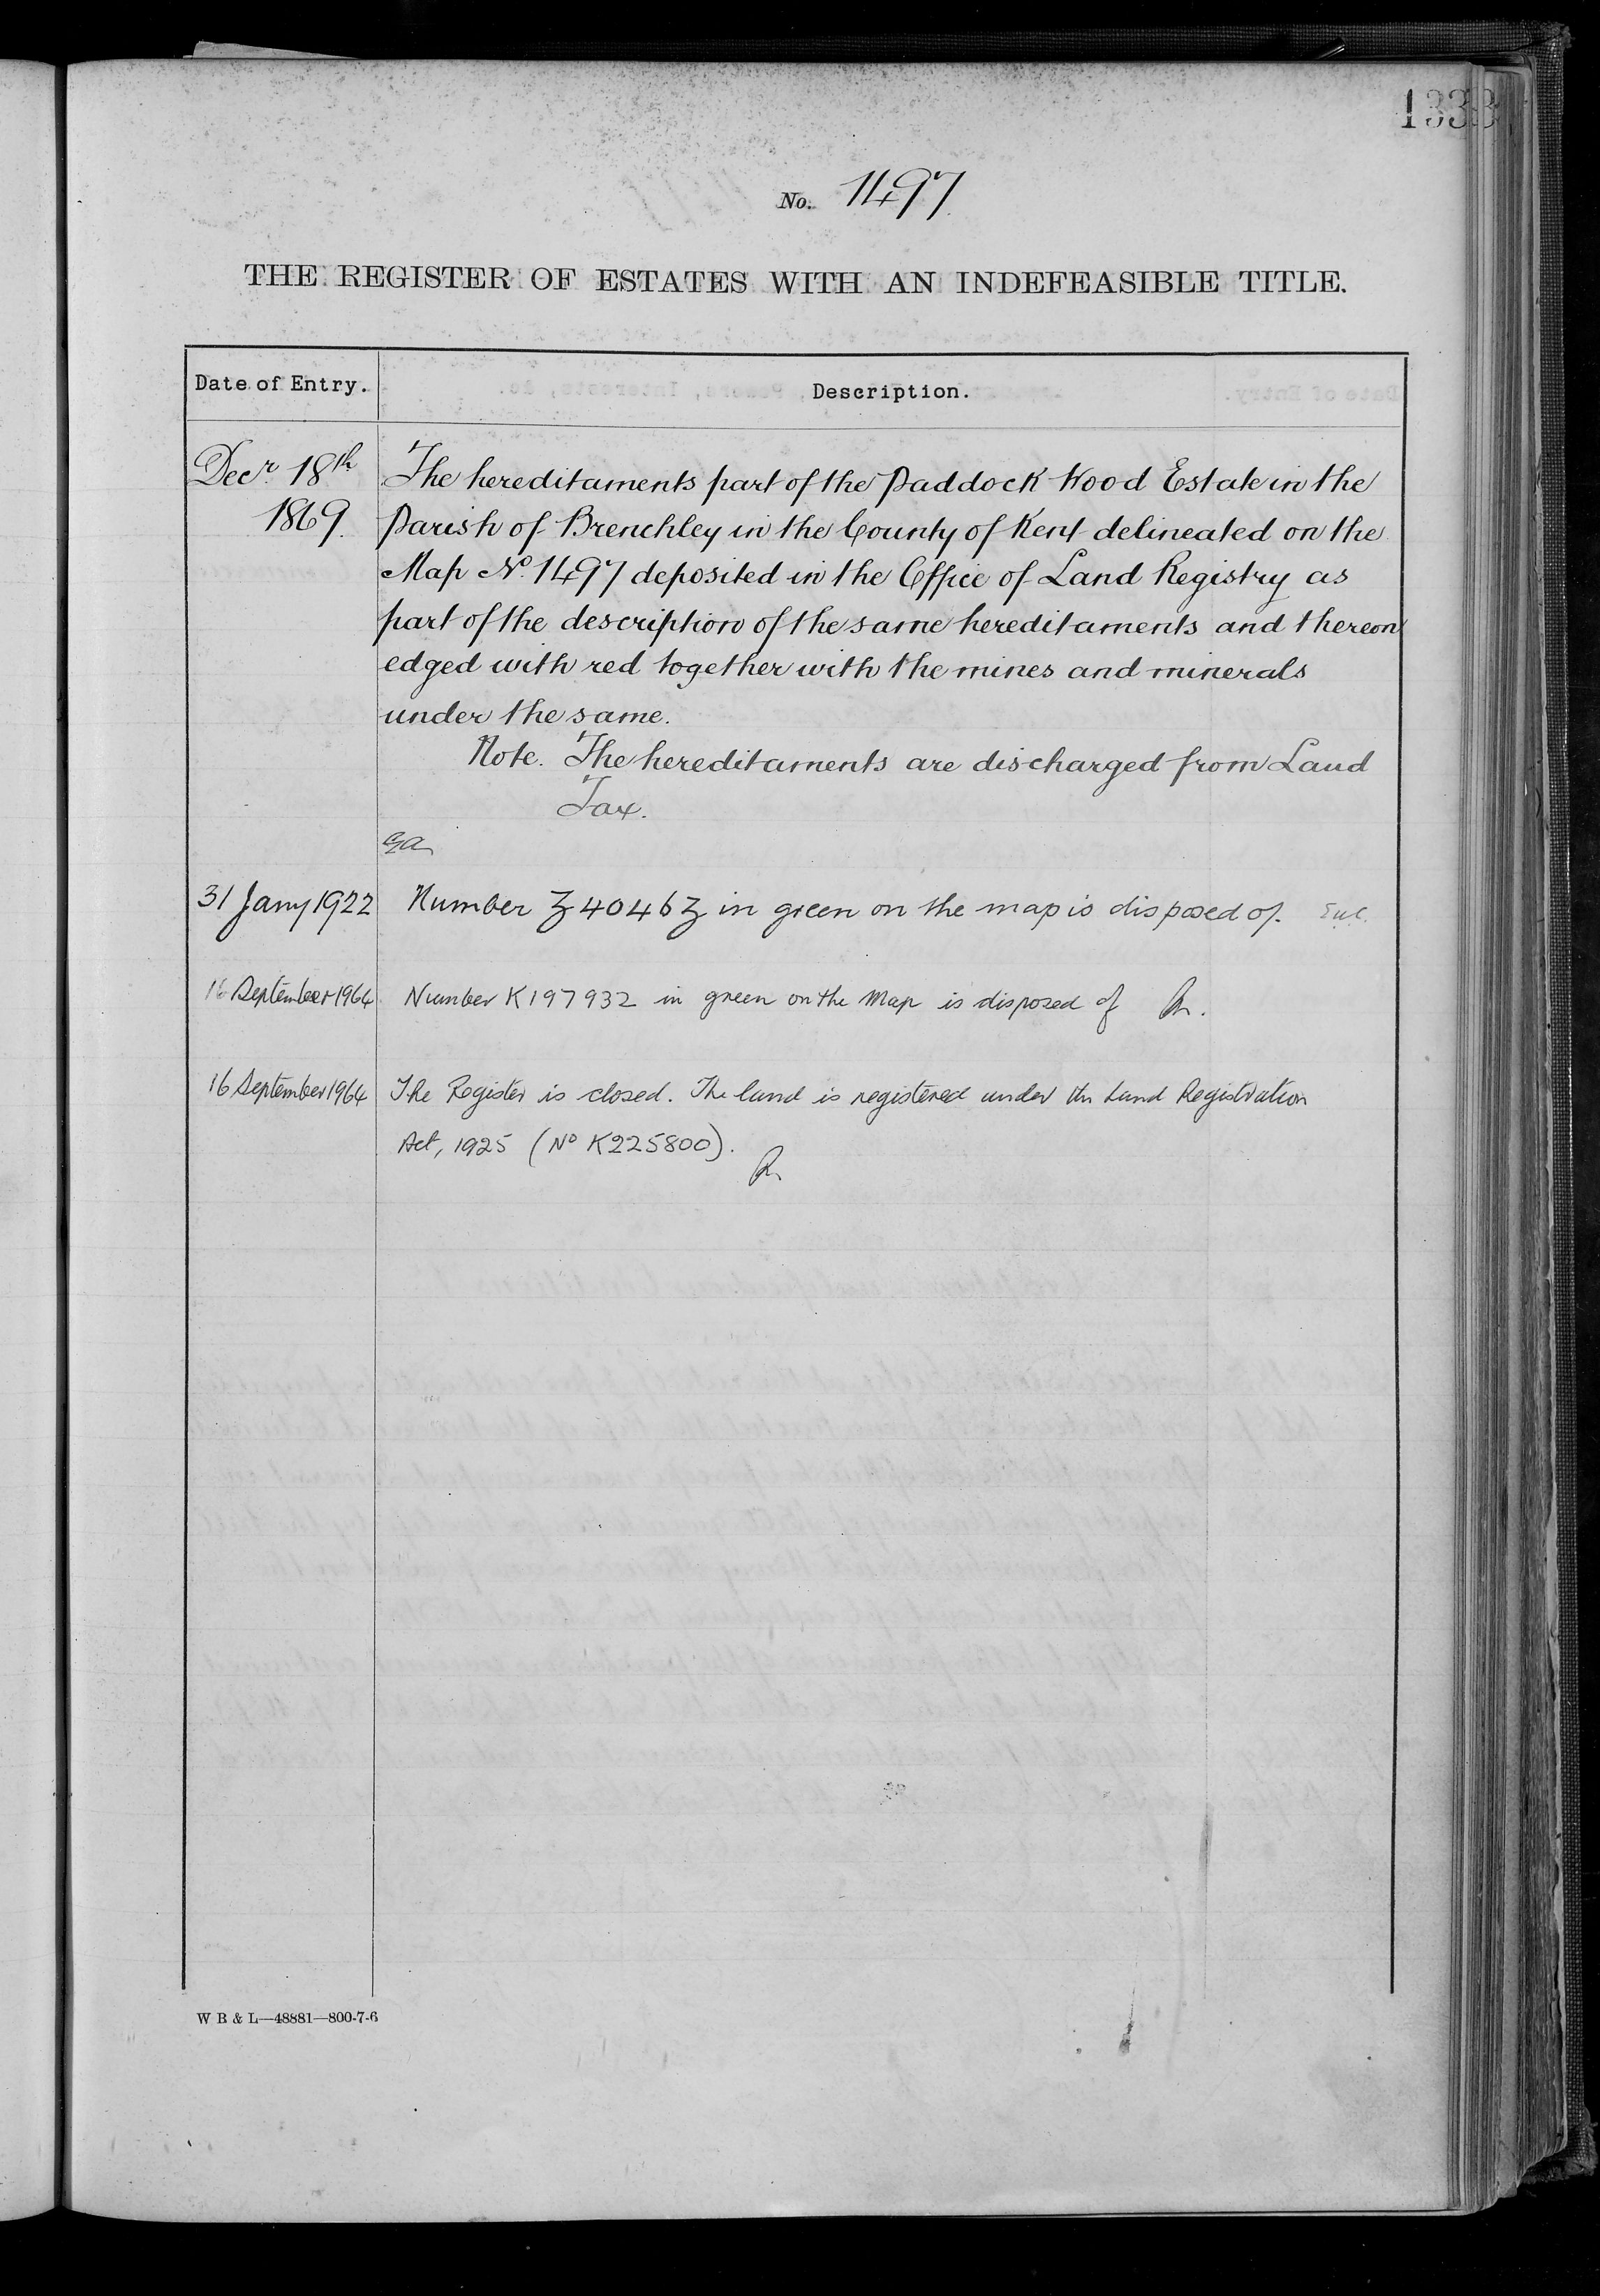 1333
No. 1497
THE REGISTER OF ESTATES WITH AN INDEFEASIBLE TITLE.
Date of Entry. Description.
Decr. 18th The hereditaments part of the Paddock Wood Estate in the
1869. Parish of Brenchley in the County of Kent delineated on the
Map No. 1497 deposited in the Office of Land Registry as
part of the description of the same hereditaments and thereon
edged with red together with the mines and minerals
under the same.
Note. The hereditaments are discharged from Land
Tax.
31 Jany 1922 Number Z 4046 Z in green on the map is disposed of.
16 September 1964 Number K197932 in green on the Map is disposed of
16 September 1964 The Register is closed. The land is registered under the Land Registration
Act, 1925 (No K225800).
W B & L—48881—800-7-6